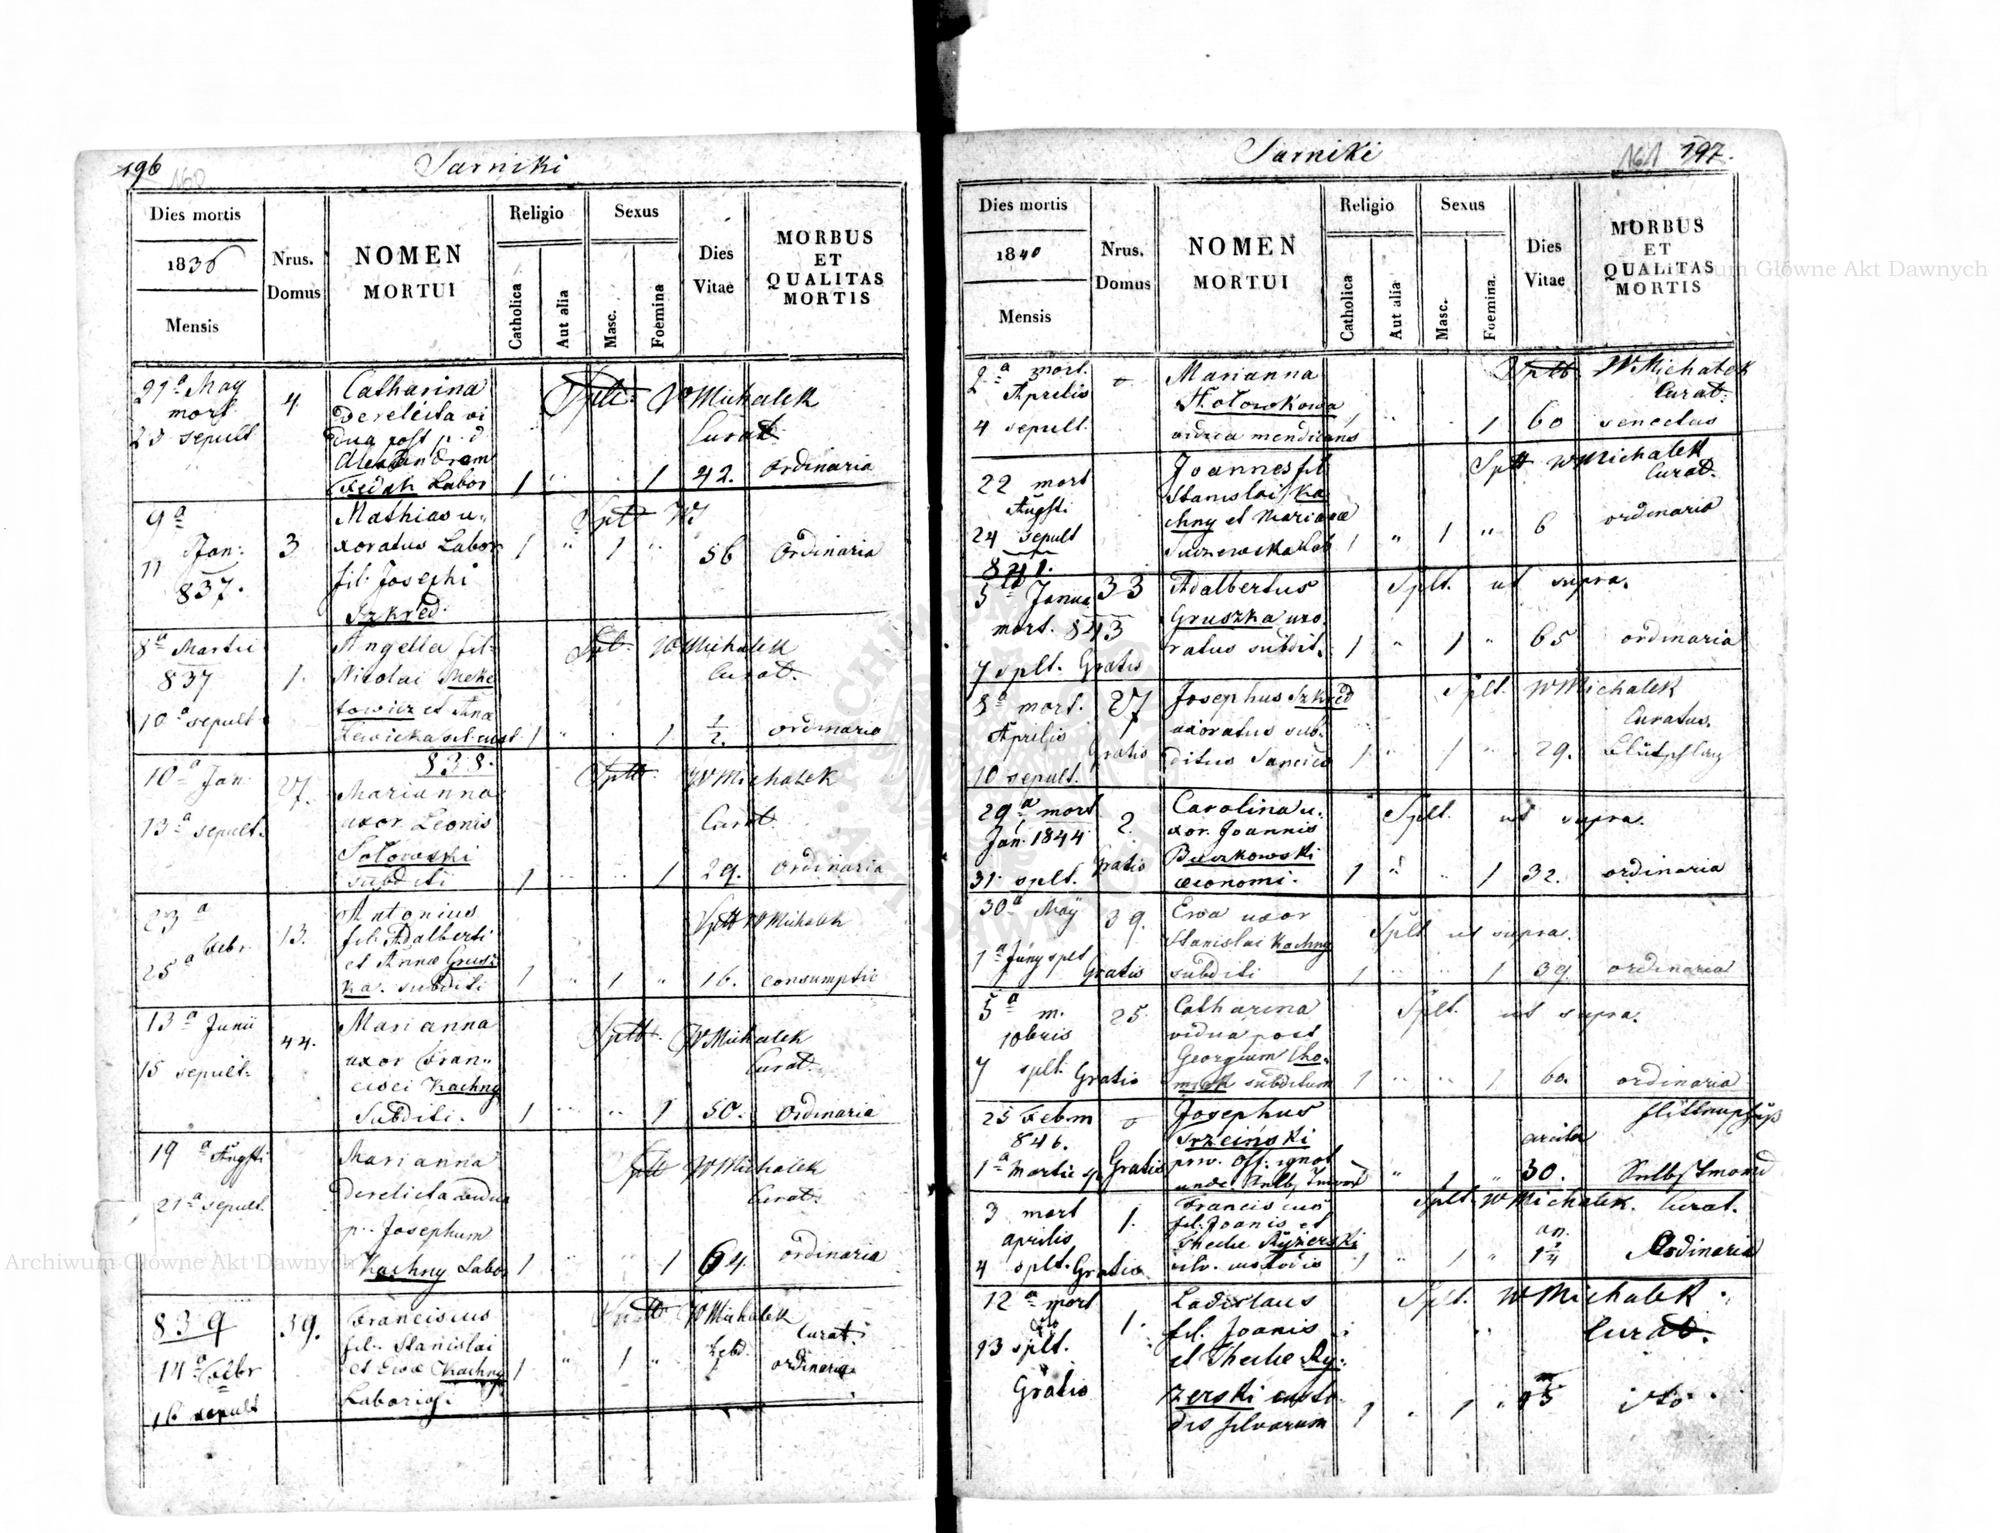 196 160
Sarniki
Dies mortis
1836
Mensis
Nrus. Domus
NOMEN MORTUI
Religio
Catholica
Aut alia
Sexus
Masc.
Foemina
Dies Vitae
MORBUS ET QUALITAS MORTIS
21ª May
mort
23 sepult
4.
Catharina
derelicta vi
dua post p. d
Alexandrum
Fedak Labor
Splt W Michalek
Curat
1 " " 1 42. ordinaria
9ª
11 Jan:
837.
3
Mathias u..
xoratus Labor
fil. Josephi
Szkred
Splt W
1 " 1 " 56 ordinaria
8ª Martii
837
10ª sepult
1.
Angella fil.
Nicolai
towicz et Anæ
Splt W Michalek
Curat.
1 " " 1 1/2. ordinaria
838.
10ª Jan:
13ª sepult.
27.
Marianna
uxor Leonis
Sołowski
subditi
Splt W Michalek
Curat.
1 " " 1 29. ordinaria
23ª
25ª Febr
13.
Antonius
fil. Adalberti
et Annæ Grusz
ka. subditi
Splt W Michalek
1 " 1 " 16. consumptio
13ª Junii
15 sepult.
44.
Marianna
uxor Fran..
cisci Kachny
Subditi.
Splt W Michalek
Curat.
1 " " 1 50. ordinaria
19ª Augsti
21ª sepult.
Marianna
derelicta vidua
p.. Josephum
Kachny Labor
Splt W Michalek
Curat.
1 " " 1 64. ordinaria
839
14ª
16 sepult
39.
Franciscus
fil. Stanislai
et Ewæ Kachny
Splt W Michalek
Curat.
1 " 1 " 1 ordinaria
Sarniki
161 197.
Dies mortis
1840
Mensis
Nrus. Domus
NOMEN MORTUI
Religio
Catholica
Aut alia
Sexus
Masc.
Foemina.
Dies Vitae
MORBUS ET QUALITAS MORTIS
2ª mort.
Aprilis
4 sepult.
Marianna
vidua mendicans
Splt W Michalek
Curat.
1 60 senectus
22 mort
Augsti
24 sepult
Joannes fil
Stanislai Ka
chny et Marianæ
Splt W Michalek
Curat.
1 " 1 " 6 ordinaria
841.
5ª Janua
mort. 843
7 splt. Gratis
33
Adalbertus
Gruszka uxo
ratus subdit.
Splt. ut supra.
1 " 1 " 65 ordinaria
8ª mort.
Aprilis
10 sepult.
27
Gratis
Josephus Szkred
uxoratus sub.
ditus
Splt. W Michalek
Curatus.
1 " 1 " 29.
29ª mort
Jan. 1844
31. splt.
2.
Gratis
Carolina u.
xor. Joannis
Buczkowski
œconomi.
Splt. ut supra.
1 " " 1 32. ordinaria
30ª May
1ª Juny splt
39.
Gratis
Ewa uxor
Stanislai Kachny
subditi
Splt ut supra.
1 " " 1 39. ordinaria
5ª m.
10bris
7 splt. Gratis
25.
Catharina
vidua post
Georgium Cho-
miak subditum
Splt. ut supra.
1 " " 1 60. ordinaria
25 Febr
846.
1ª Martii Gratis
Josephus
Trzciński
priv. Off. ignot
unde
circiter
1 " 1 " 30. Selbstmord
3 mort
aprilis
4 splt. Gratis
1.
Franciscus
fil. Joanis et
Theclæ Ryzerski
silv. custodis
Splt. W Michalek. Curat.
an.
1 " 1 " 1 1/4 Ordinaria
12ª mort
13 splt.
Gratis
1.
Ladislaus
fil. Joanis
et Theclæ Ry:
zerski custo-
dis silvarum
Splt. W Michalek
Curat.
1 " 1 "
Archiwum Główne Akt Dawnych
Archiwum Główne Akt Dawnych